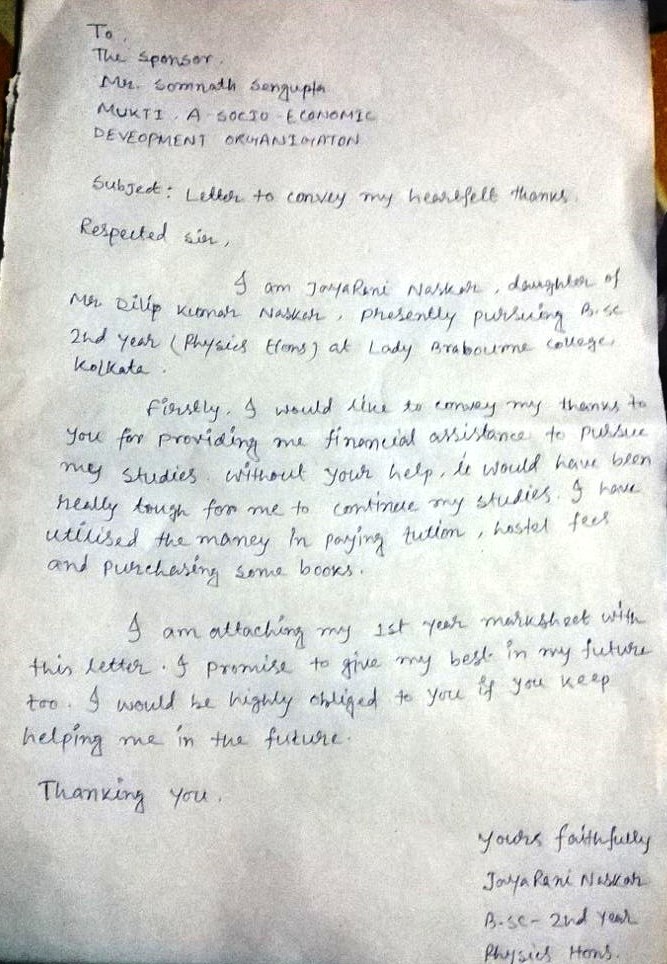 To,
The Sponsor.
Mr. Somnath Sengupta
MUKTI. A SOCIO-ECONOMIC
DEVEOPMENT ORGANISATON
Subject: Letter to convey my heartfelt thanks.
Respected sir,
I am JayaRani Naskar, daughter of
Mr Dilip Kumar Naskar, presently pursuing B.sc
2nd year (Physics Hons) at Lady Brabourne College,
Kolkata.
Firstly, I would like to convey my thanks to
you for providing me financial assistance to pursue
my studies. Without your help, it would have been
really tough for me to continue my studies. I have
utilised the money in paying tution, hostel fees
and purchasing some books.
I am attaching my 1st year marksheet with
this letter. I promise to give my best in my future
too. I would be highly obliged to you if you keep
helping me in the future.
Thanking you.
Yours faithfully
JayaRani Naskar
B.sc- 2nd year
Physics Hons.